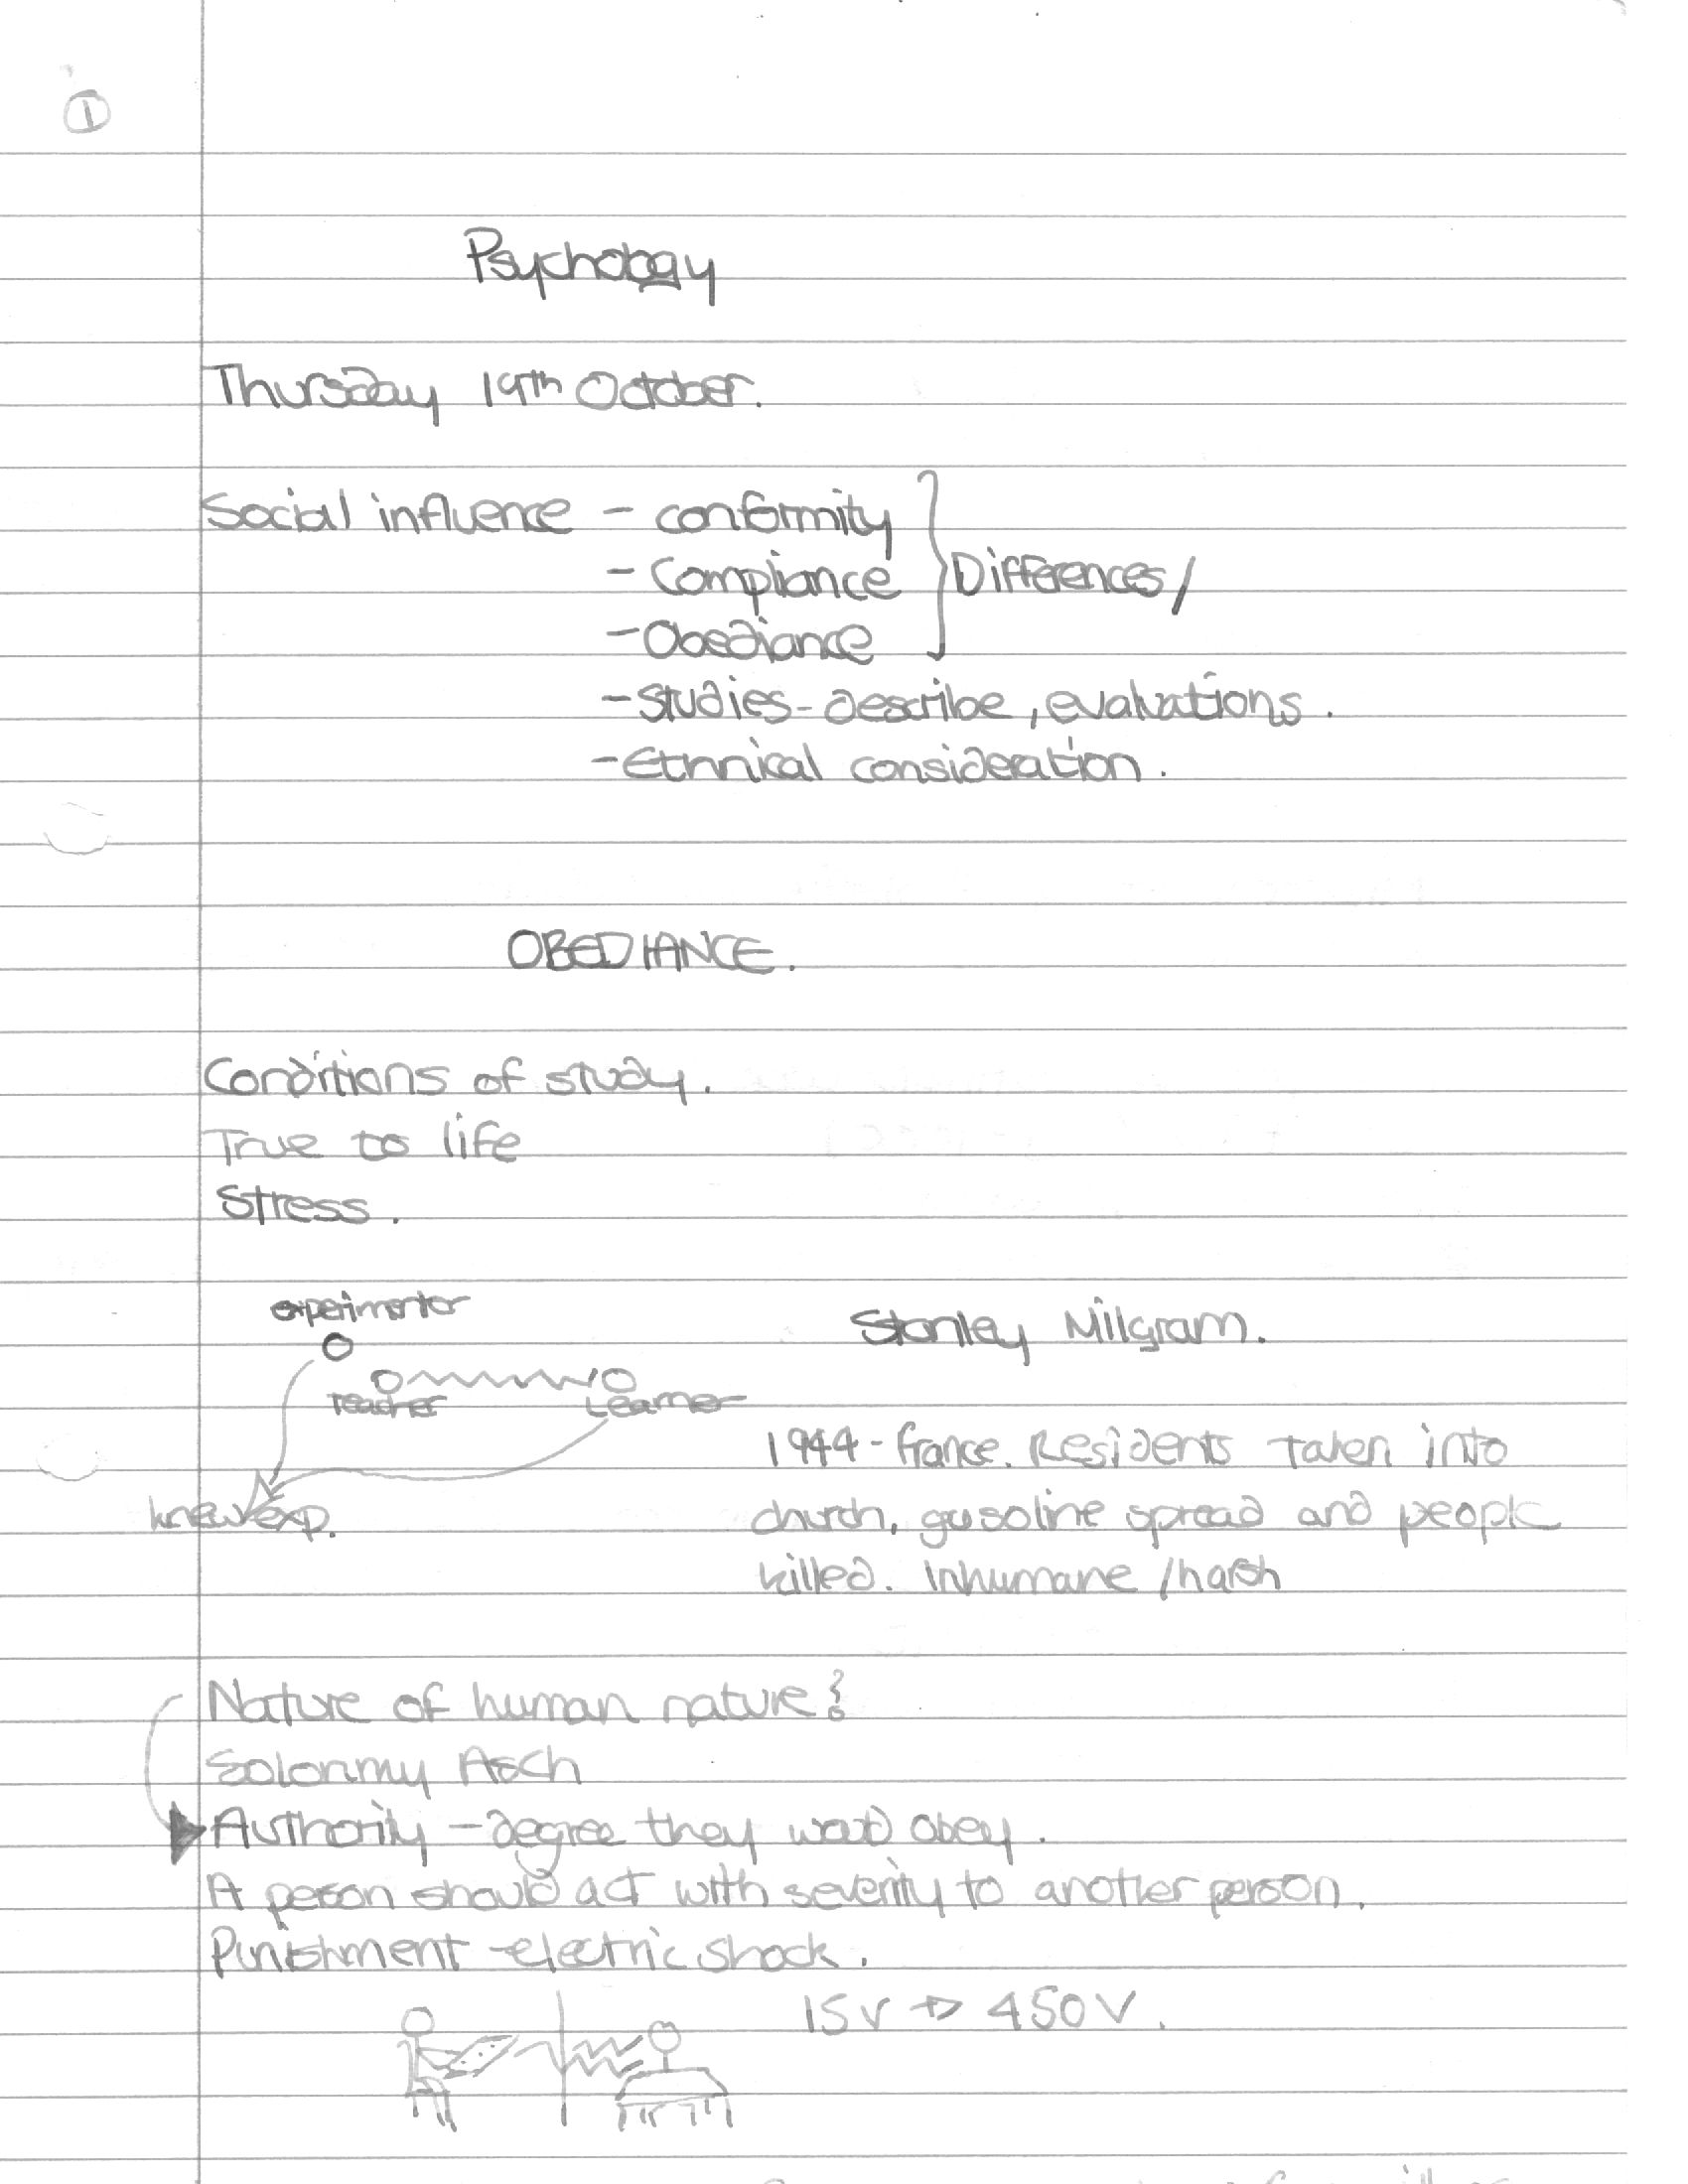 1
Psychology
Thursday 19th October.
Social influence - conformity
- Compliance
Differences/
- Obediance
- Studies - describe, evaluations.
- Ethnical consideration.
OBEDIANCE.
Conditions of study.
True to life
Stress.
experimenter
Stanley Milgram.
Teacher Learner
1944 - france. Residents taken into
knew exp.
church, gasoline spread and people
killed. Inhumane / harsh
Nature of human nature?
Solonmy Asch
Authority - degree they would obey.
A person should act with severity to another person.
Punishment - electric shock.
15V → 450V.